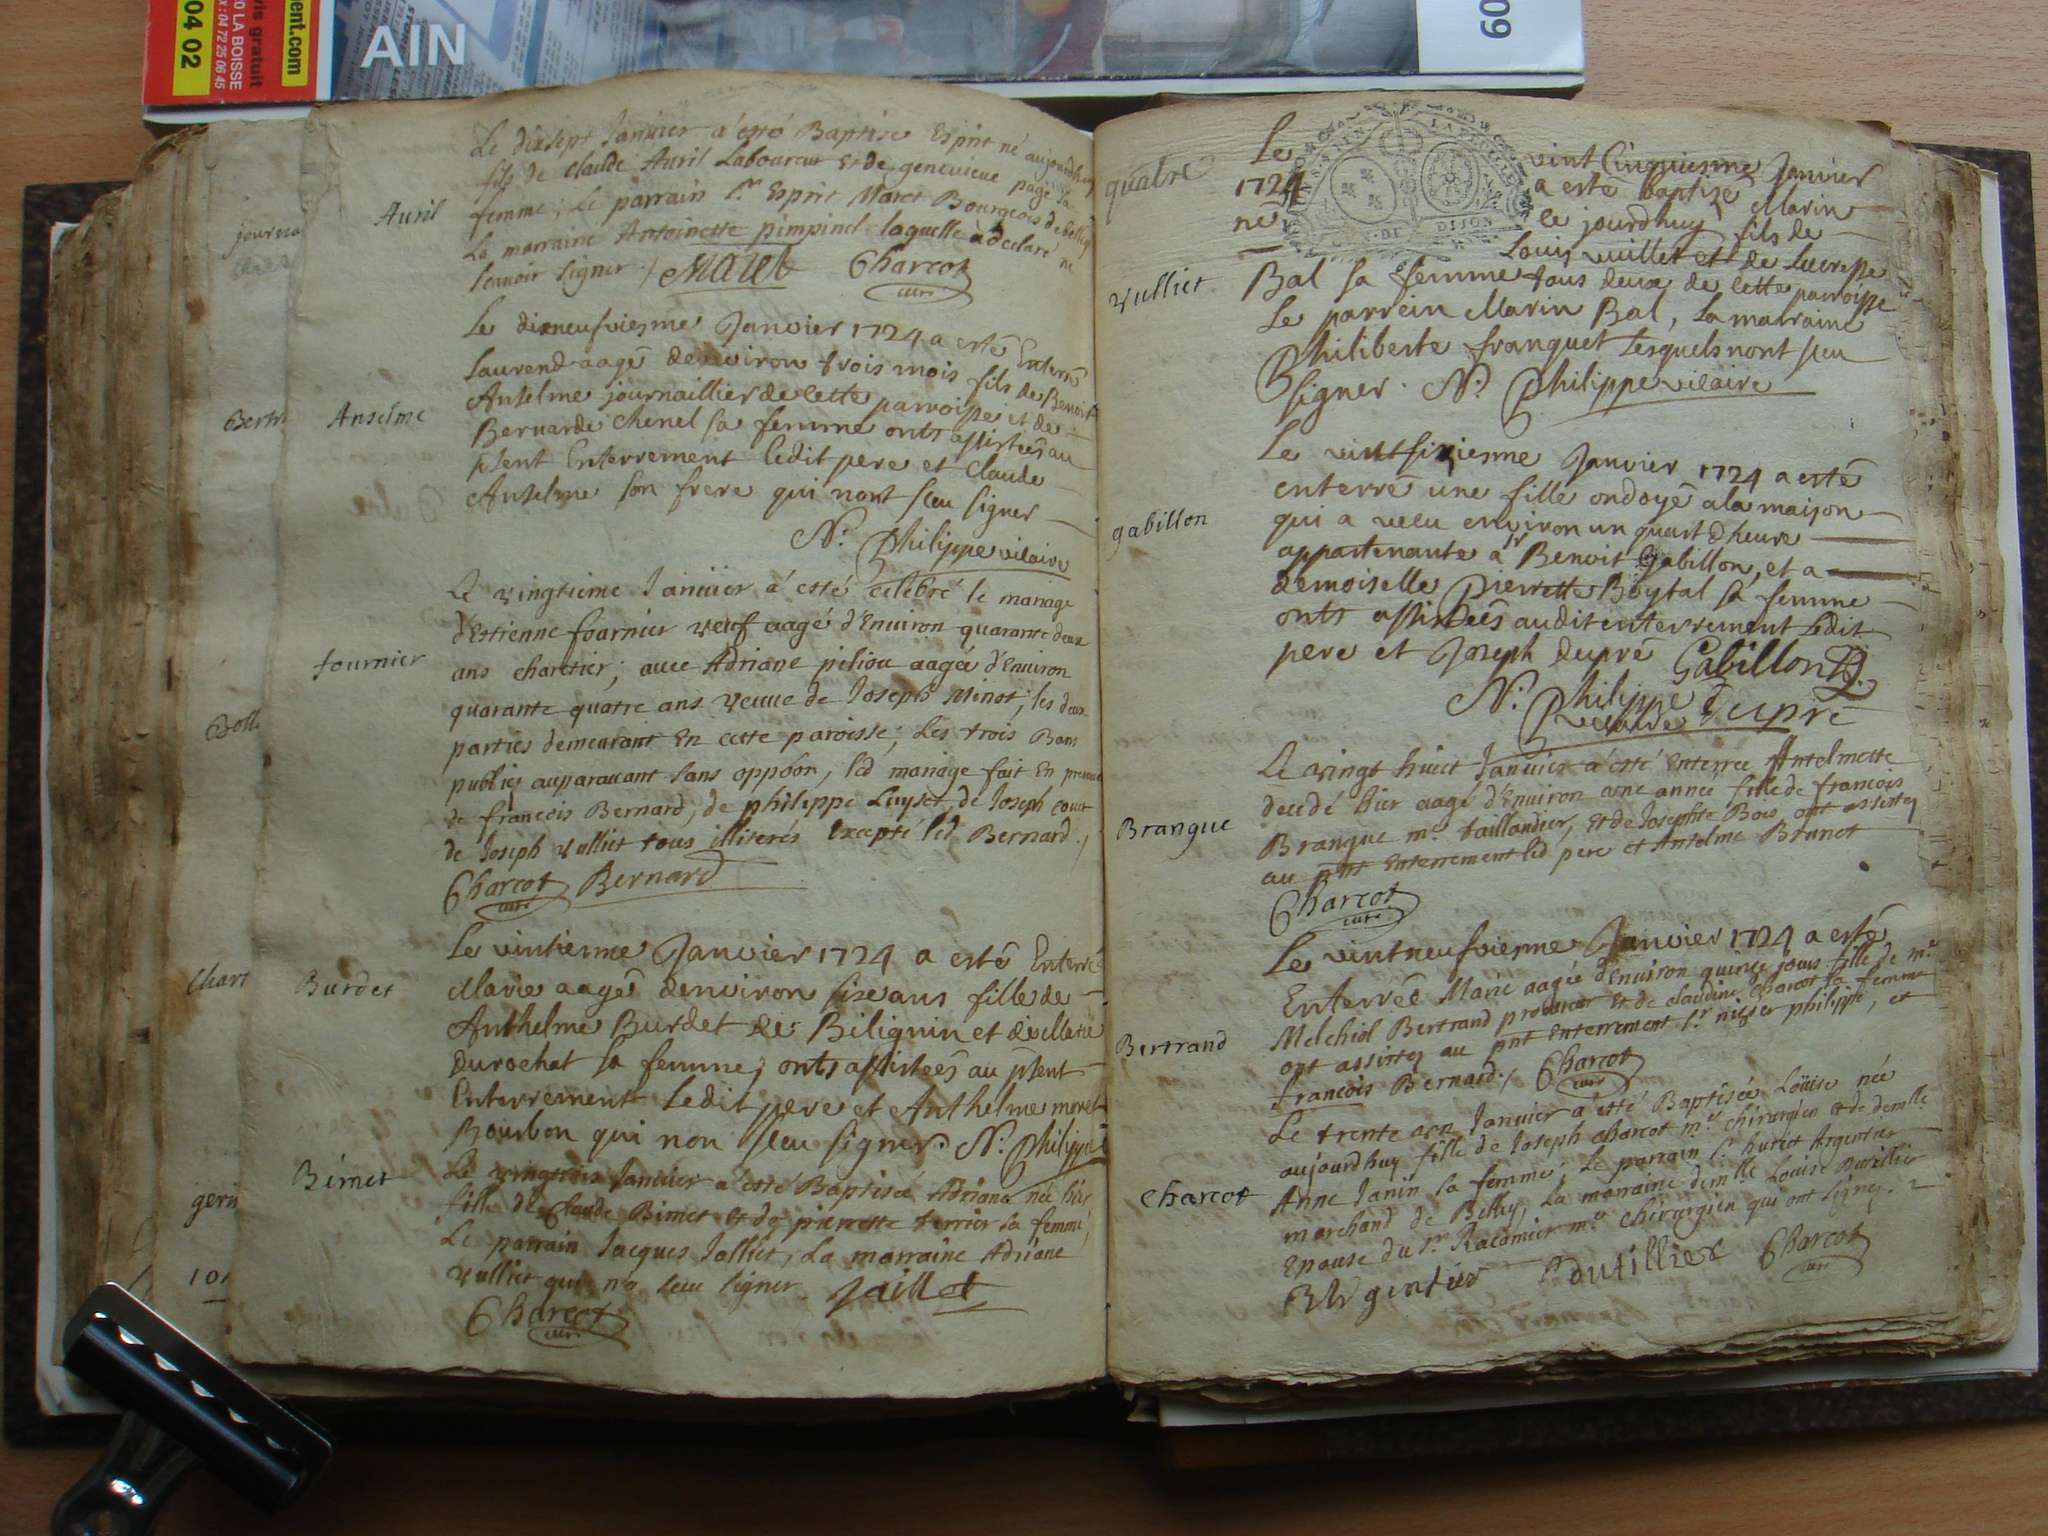 04 02
x : 04 72 25 06 45
0 LA BOISSE
vis gratuit
ent.com
AIN
09
journa
Bertr
Bott
Chart
gerin
101
Le dixsept Janvier a esté Baptise Esprit né aujourdhuy
fils de Claude Auril Laboureur Et de genevieve page sa
Auril
femme; Le parrain Sr. Esprit Maret Bourgeois de Belley
La marraine Antoinette pimpinel laquelle a declaré ne
scavoir signer ./ Charcot
curé
Le dixneufviesme Janvier 1724 a esté Enterré
Laurend aagé denviron trois mois fils de Benoit
Anselme
Anselme journaillier de cette parroisse et de
Bernarde Chenel sa femme onts assistees au
psent Enterrement Ledit pere et Claude
Anselme son frere qui nont sceu signer
N. Philippe vicaire
Le vingtieme Janvier a esté celebré le mariage
d'Estienne fournier veuf aagé d'Environ quarante deux
fournier
ans chartier; avec Adriane piliou aagée d'Environ
quarante quatre ans veuve de Joseph Minot; les deux
parties demeurant En cette paroisse; Les trois Bans
publiez auparavant sans oppôon, led mariage fait En presence
de francois Bernard, de philippe Luyset, de Joseph court
de Joseph vulliet tous illiterés Excepté led Bernard ./
Charcot Bernard
curé
Le vintiesme Janvier 1724 a esté Enterré
Marie aagée denviron six ans fille de
Burdet
Anthelme Burdet de Bilignin et de
Durochat sa femme, onts assistees au psent
Enterrement Ledit pere et Anthelme moret
Bourbon qui non sceu signer. N. Philippe
Bimet
Le vingtrois Janvier a esté Baptisée Adriane née hier
fille de Claude Bimet Et de pierrette terrier sa femme,
Le parrain Jacques Jalliet, La marraine Adriane
vulliet qui na sceu signer. Jaillet
Charcot
curé
quatre
Le vint Cinquiesme Janvier
1724 a esté baptizé Marin
né ce jourdhuy fils de
DIJON
Louis vuillet et de Lucresse
vulliet
Bal sa femme tous deux de cette parroisse
Le parrein Marin Bal, La marraine
Philiberte franquet Lesquels nont sceu
signer. N. Philippe vicaire
Le vintsixiesme Janvier 1724 a esté
enterré une fille ondoyé a la maison
gabillon
qui a vecu environ un quart dheure
appartenante a sr Benoit Gabillon, et a
demoiselle Pierrette Boytal sa femme
onts assistées audit enterrement Ledit
pere et Joseph dupré Gabillon
N. Philippe dupré
vicaire
Le vingt huict Janvier a esté Enterrée Antelmette
decedé hier aagé d'Environ une année fille de francois
Brangue
Brangue mr. taillandier, Et de Josephte Bois ont assistez
au pnt Enterrement led pere et Antelme Brunet
Charcot
curé
Le vintneufviesme Janvier 1724 a esté
Enterrée Marie aagée d'Environ quinze jours fille de mr
Bertrand
Melchiol Bertrand procureur Et de claudine Charcot sa femme
ont assistez au pnt Enterrement sr nizier philippe, et
francois Bernard ./ Charcot
curé
Le trente un Janvier a esté Baptisée Loüise née
aujourdhuy fille de Joseph Charcot mr chirurgien et de demlle
Charcot
Anne Janin sa femme. Le parrain sr. hurict Argentier
marchand de Belley, La marraine demlle Louise Butillier
Epouse du sr. Racamier mr chirurgien qui ont signez.
Argentier Butillier Charcot
curé